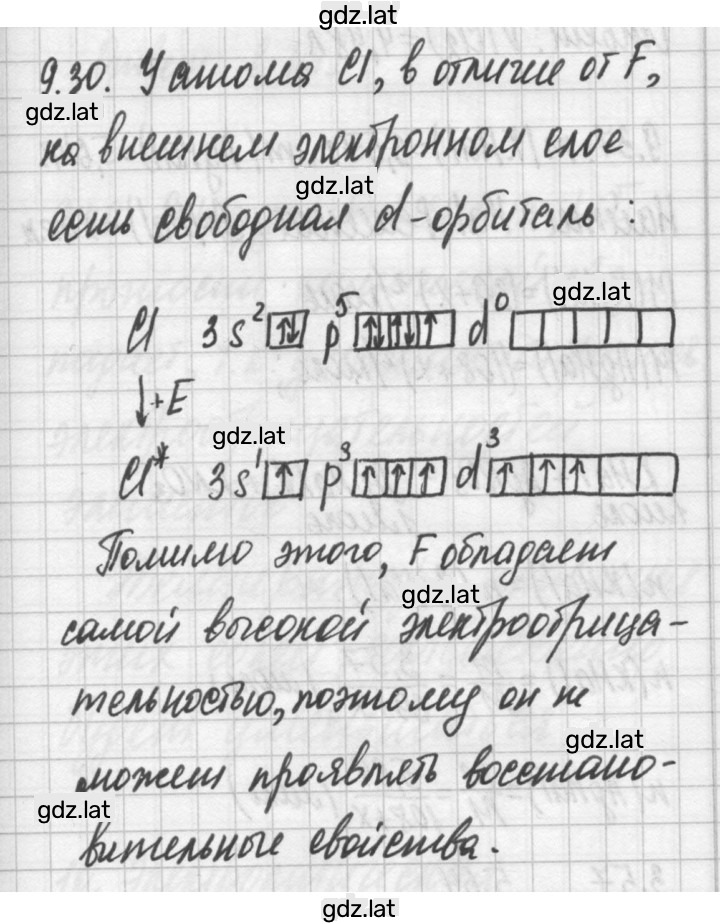 gdz.lat
9.30. У атома Cl, в отличие от F,
gdz.lat
на внешнем электронном слое
gdz.lat
есть свободная d-орбиталь:
gdz.lat
Cl 3s² [↑↓] p⁵ [↑↓][↑↓][↑] d⁰ [ ][ ][ ][ ][ ]
↓+E
gdz.lat
Cl* 3s¹ [↑] p³ [↑][↑][↑] d³ [↑][↑][↑][ ][ ]
Помимо этого, F обладает
gdz.lat
самой высокой электроотрица-
тельностью, поэтому он не
gdz.lat
может проявлять восстано-
gdz.lat
вительные свойства.
gdz.lat